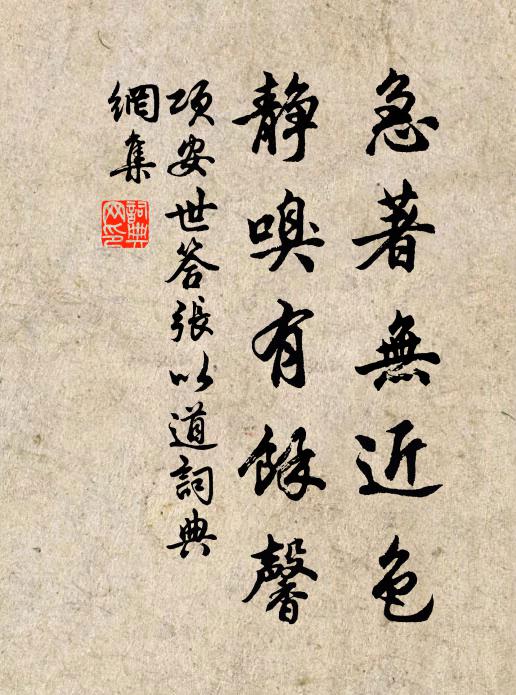 急著無近色
靜嗅有餘馨
項安世答張以道詞典
網集
詞典
网印